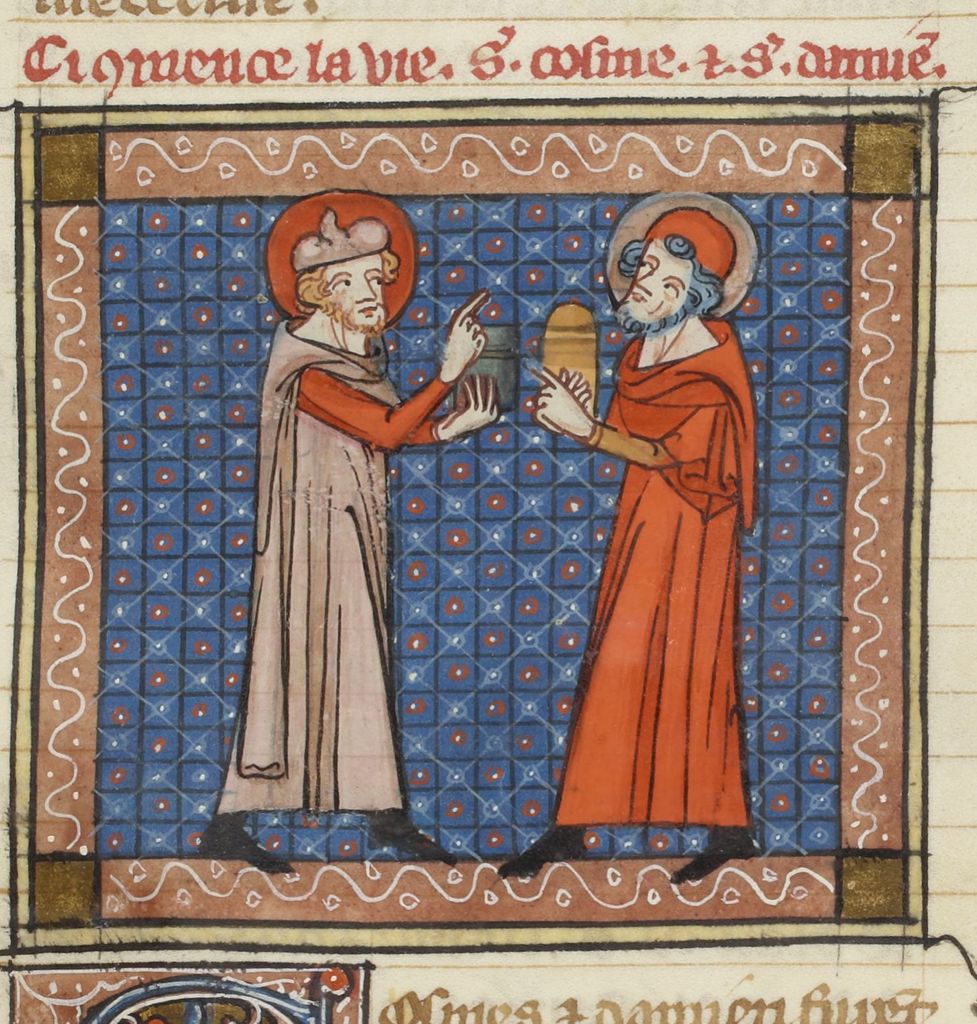 Ci 9mence la vie. S'. cosme. ⁊. S'. damiē.
Osmes ⁊ damien furēt